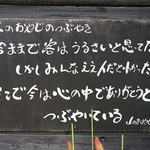 のおやじのつぶやき
今まで客はうるさいと思てた
しかしみんなええ人だとわかった
で今は心の中でありがとうと
つぶやいている